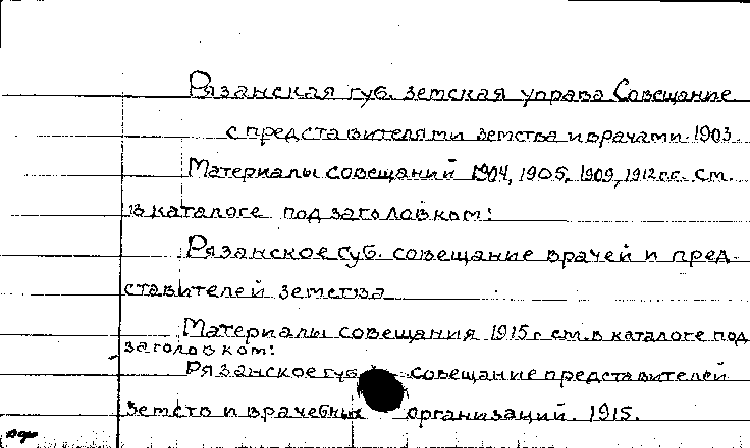 Рязанская губ. земская управа. Совещание
с представителями земства и врачами. 1903.
Материалы совещаний 1904, 1905, 1909, 1912 г.г. см.
в каталоге под заголовком:
Рязанское губ. совещание врачей и пред-
ставителей земства
Материалы совещания 1915 г. см. в каталоге под
заголовком:
Рязанское губ. совещание представителей
земств и врачебных организаций. 1915.